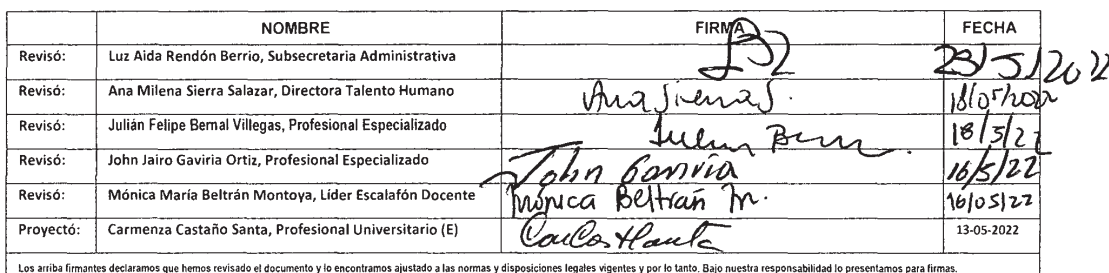 NOMBRE FIRMA FECHA
Revisó: Luz Aida Rendón Berrio, Subsecretaria Administrativa 23/5/2022
Revisó: Ana Milena Sierra Salazar, Directora Talento Humano Ana Sierra S. 18/05/2022
Revisó: Julián Felipe Bernal Villegas, Profesional Especializado 18/5/22
Revisó: John Jairo Gaviria Ortiz, Profesional Especializado John Gaviria 16/5/22
Revisó: Mónica María Beltrán Montoya, Líder Escalafón Docente Mónica Beltrán M. 16/05/22
Proyectó: Carmenza Castaño Santa, Profesional Universitario (E) 13-05-2022
Los arriba firmantes declaramos que hemos revisado el documento y lo encontramos ajustado a las normas y disposiciones legales vigentes y por lo tanto. Bajo nuestra responsabilidad lo presentamos para firmas.